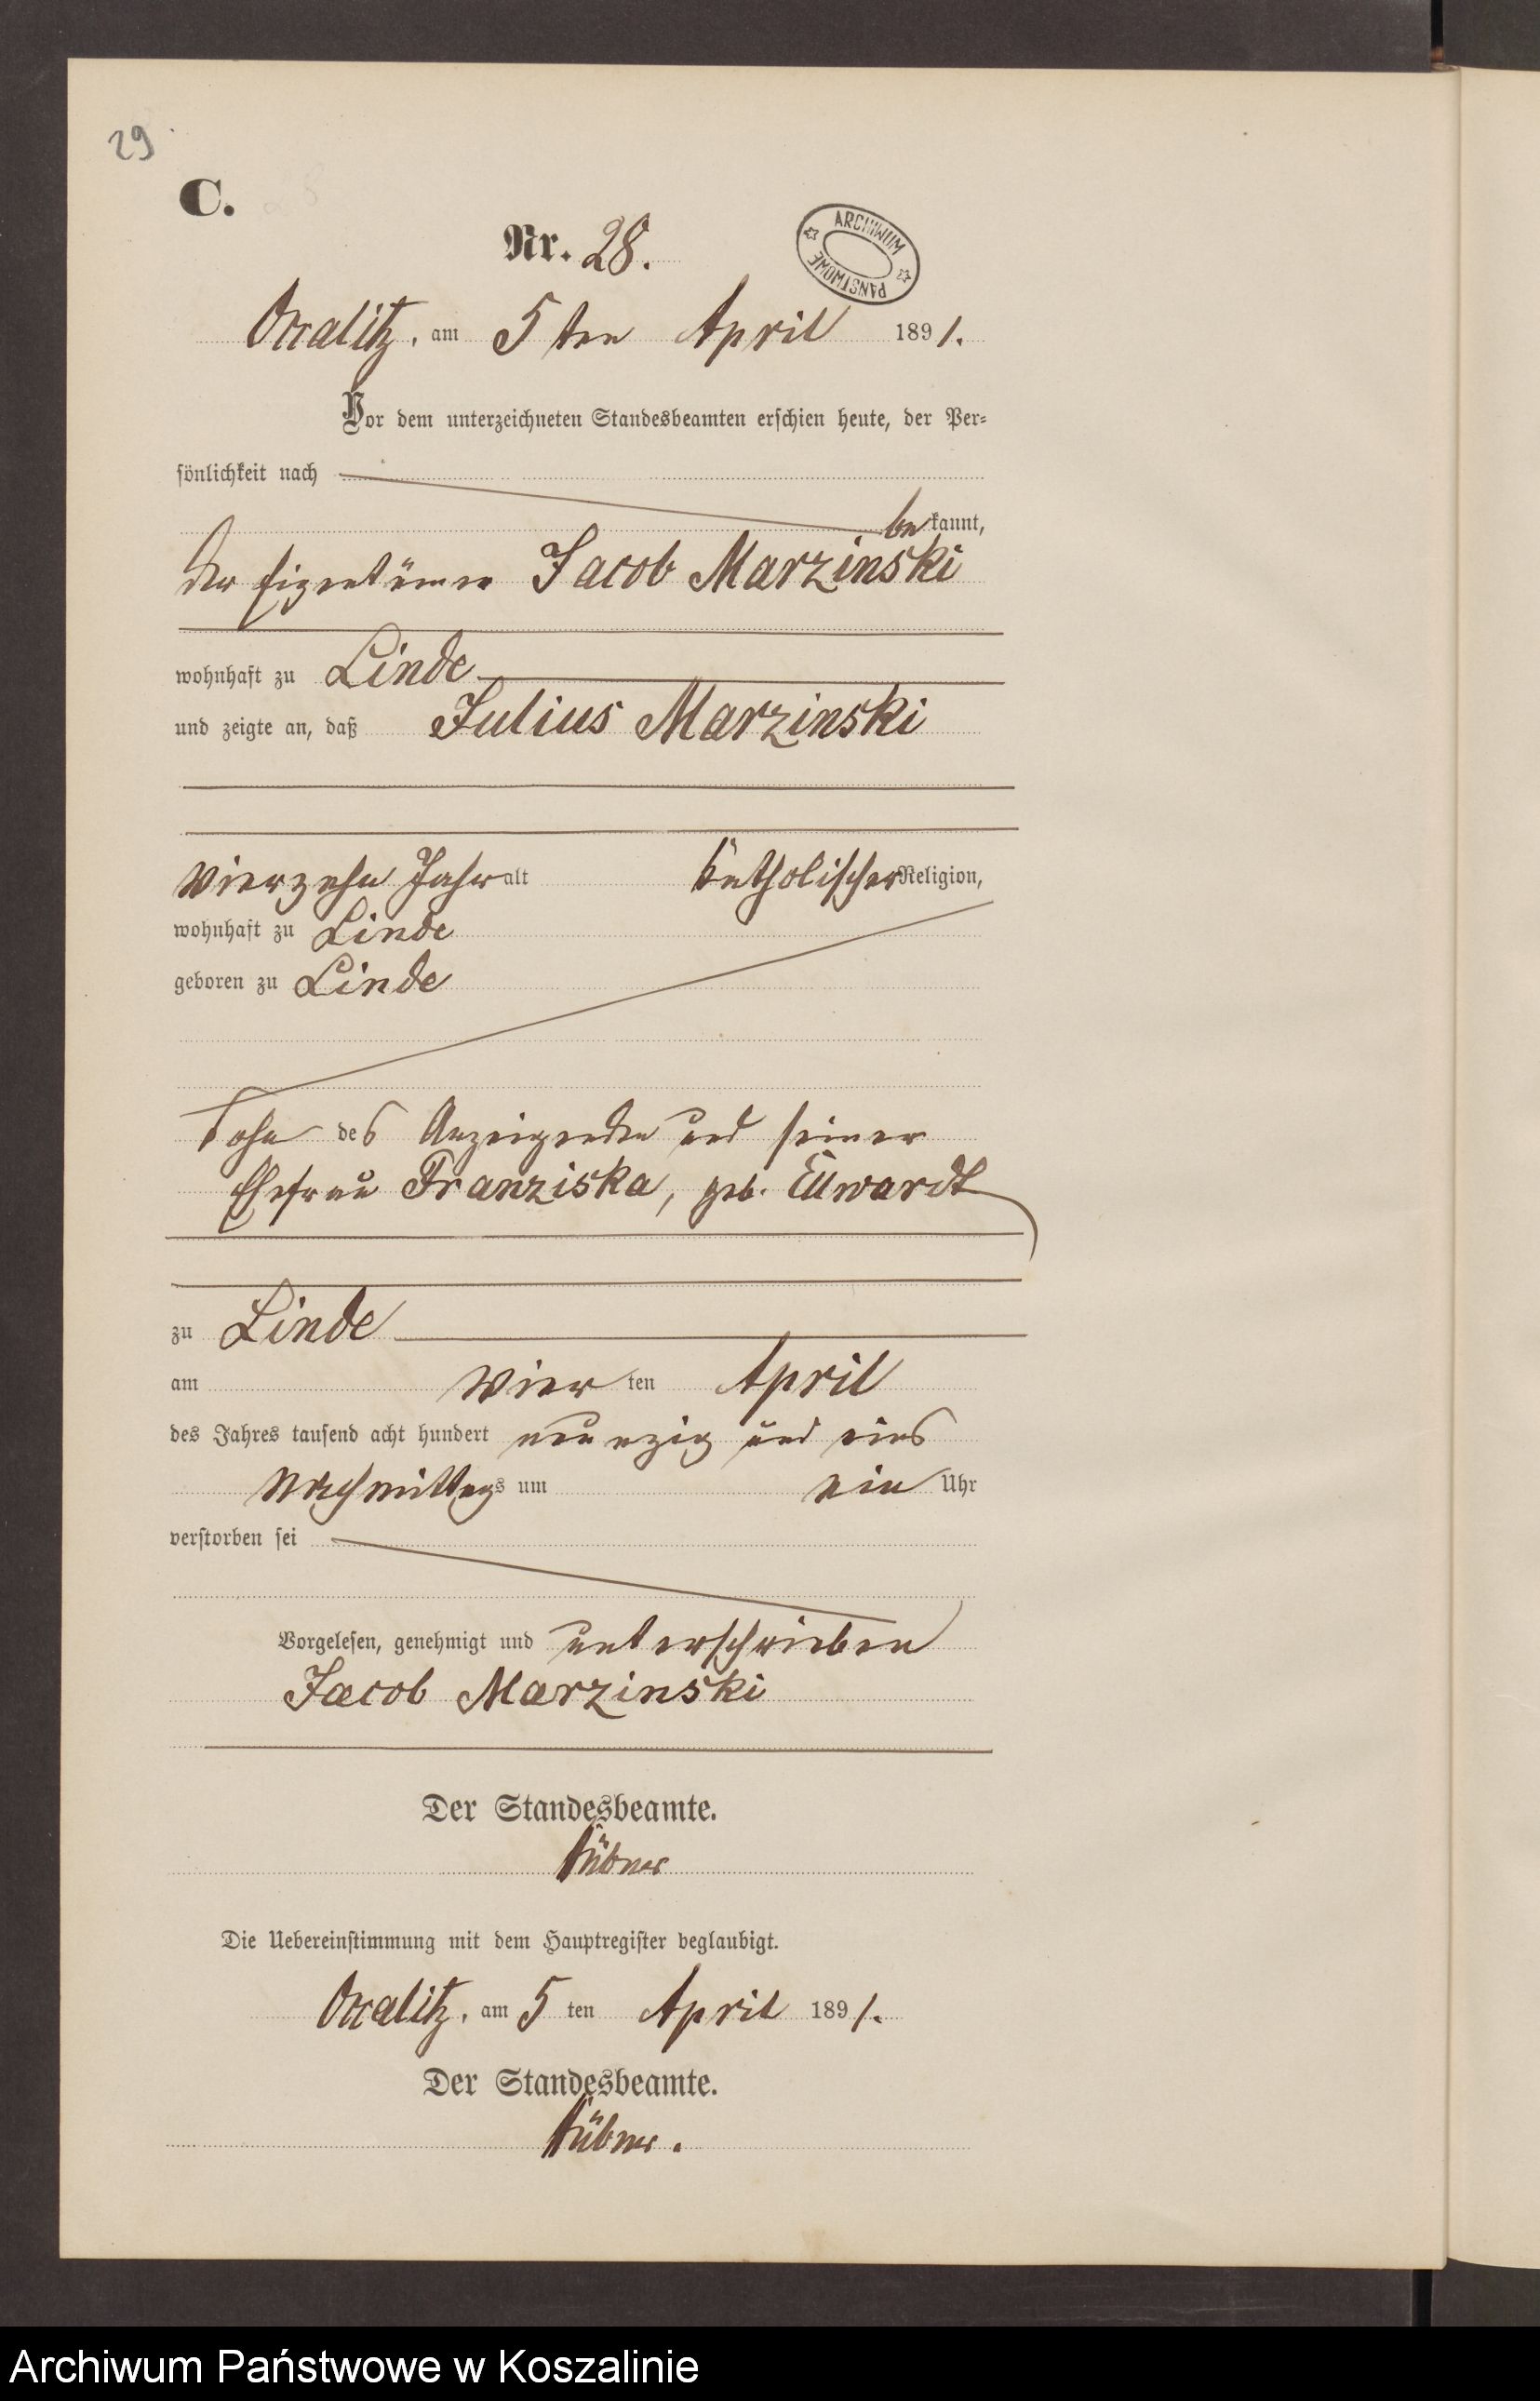 29
C.
Nr. 28.
ARCHIWUM PAŃSTWOWE
Ossalitz, am 5 ten April 1891.
Vor dem unterzeichneten Standesbeamten erschien heute, der Per-
sönlichkeit nach
bekannt,
der Eigentümer Jacob Marzinski
wohnhaft zu Linde
und zeigte an, daß Julius Marzinski
vierzehn Jahr alt katholischer Religion,
wohnhaft zu Linde
geboren zu Linde
Sohn des Anzeigenden und seiner
Ehefrau Franziska, geb. Ellwardt
zu Linde
am vierten April
des Jahres tausend acht hundert neunzig und eins
Nachmittags um ein Uhr
verstorben sei
Vorgelesen, genehmigt und unterschrieben
Jacob Marzinski
Der Standesbeamte.
Die Uebereinstimmung mit dem Hauptregister beglaubigt.
Ossalitz, am 5 ten April 1891.
Der Standesbeamte.
Archiwum Państwowe w Koszalinie